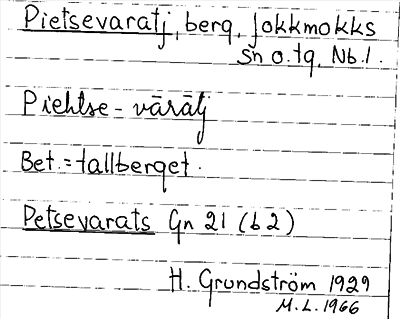 Pietsevaratj, berg, Jokkmokks
sn o. tg, Nb. l.
Piehtse-vārātj
Bet. = tallberget.
Petsevarats Gn 21 (b2)
H. Grundström 1929
M. L. 1966